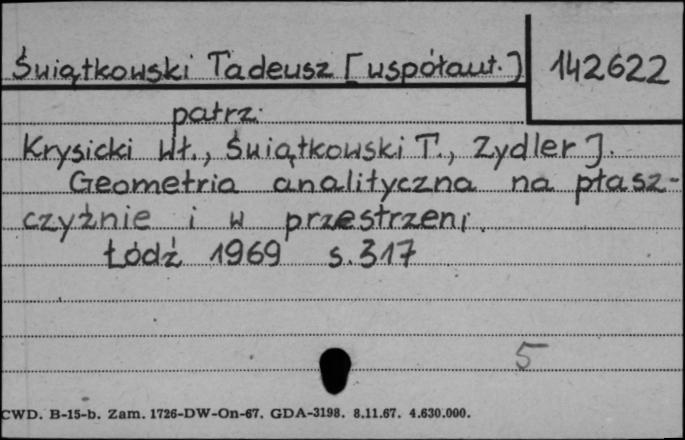 Świątkowski Tadeusz [współaut.] 142622
patrz:
Krysicki Wł., Świątkowski T., Zydler J.
Geometria analityczna na płasz-
czyźnie i w przestrzeni.
Łódź 1969 s. 317
5
CWD. B-15-b. Zam. 1726-DW-On-67. GDA-3198. 8.11.67. 4.630.000.